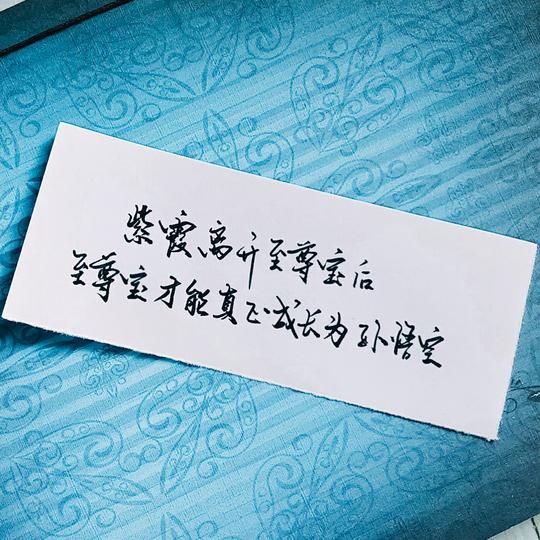 紫霞离开至尊宝后
至尊宝才能真正成长为孙悟空